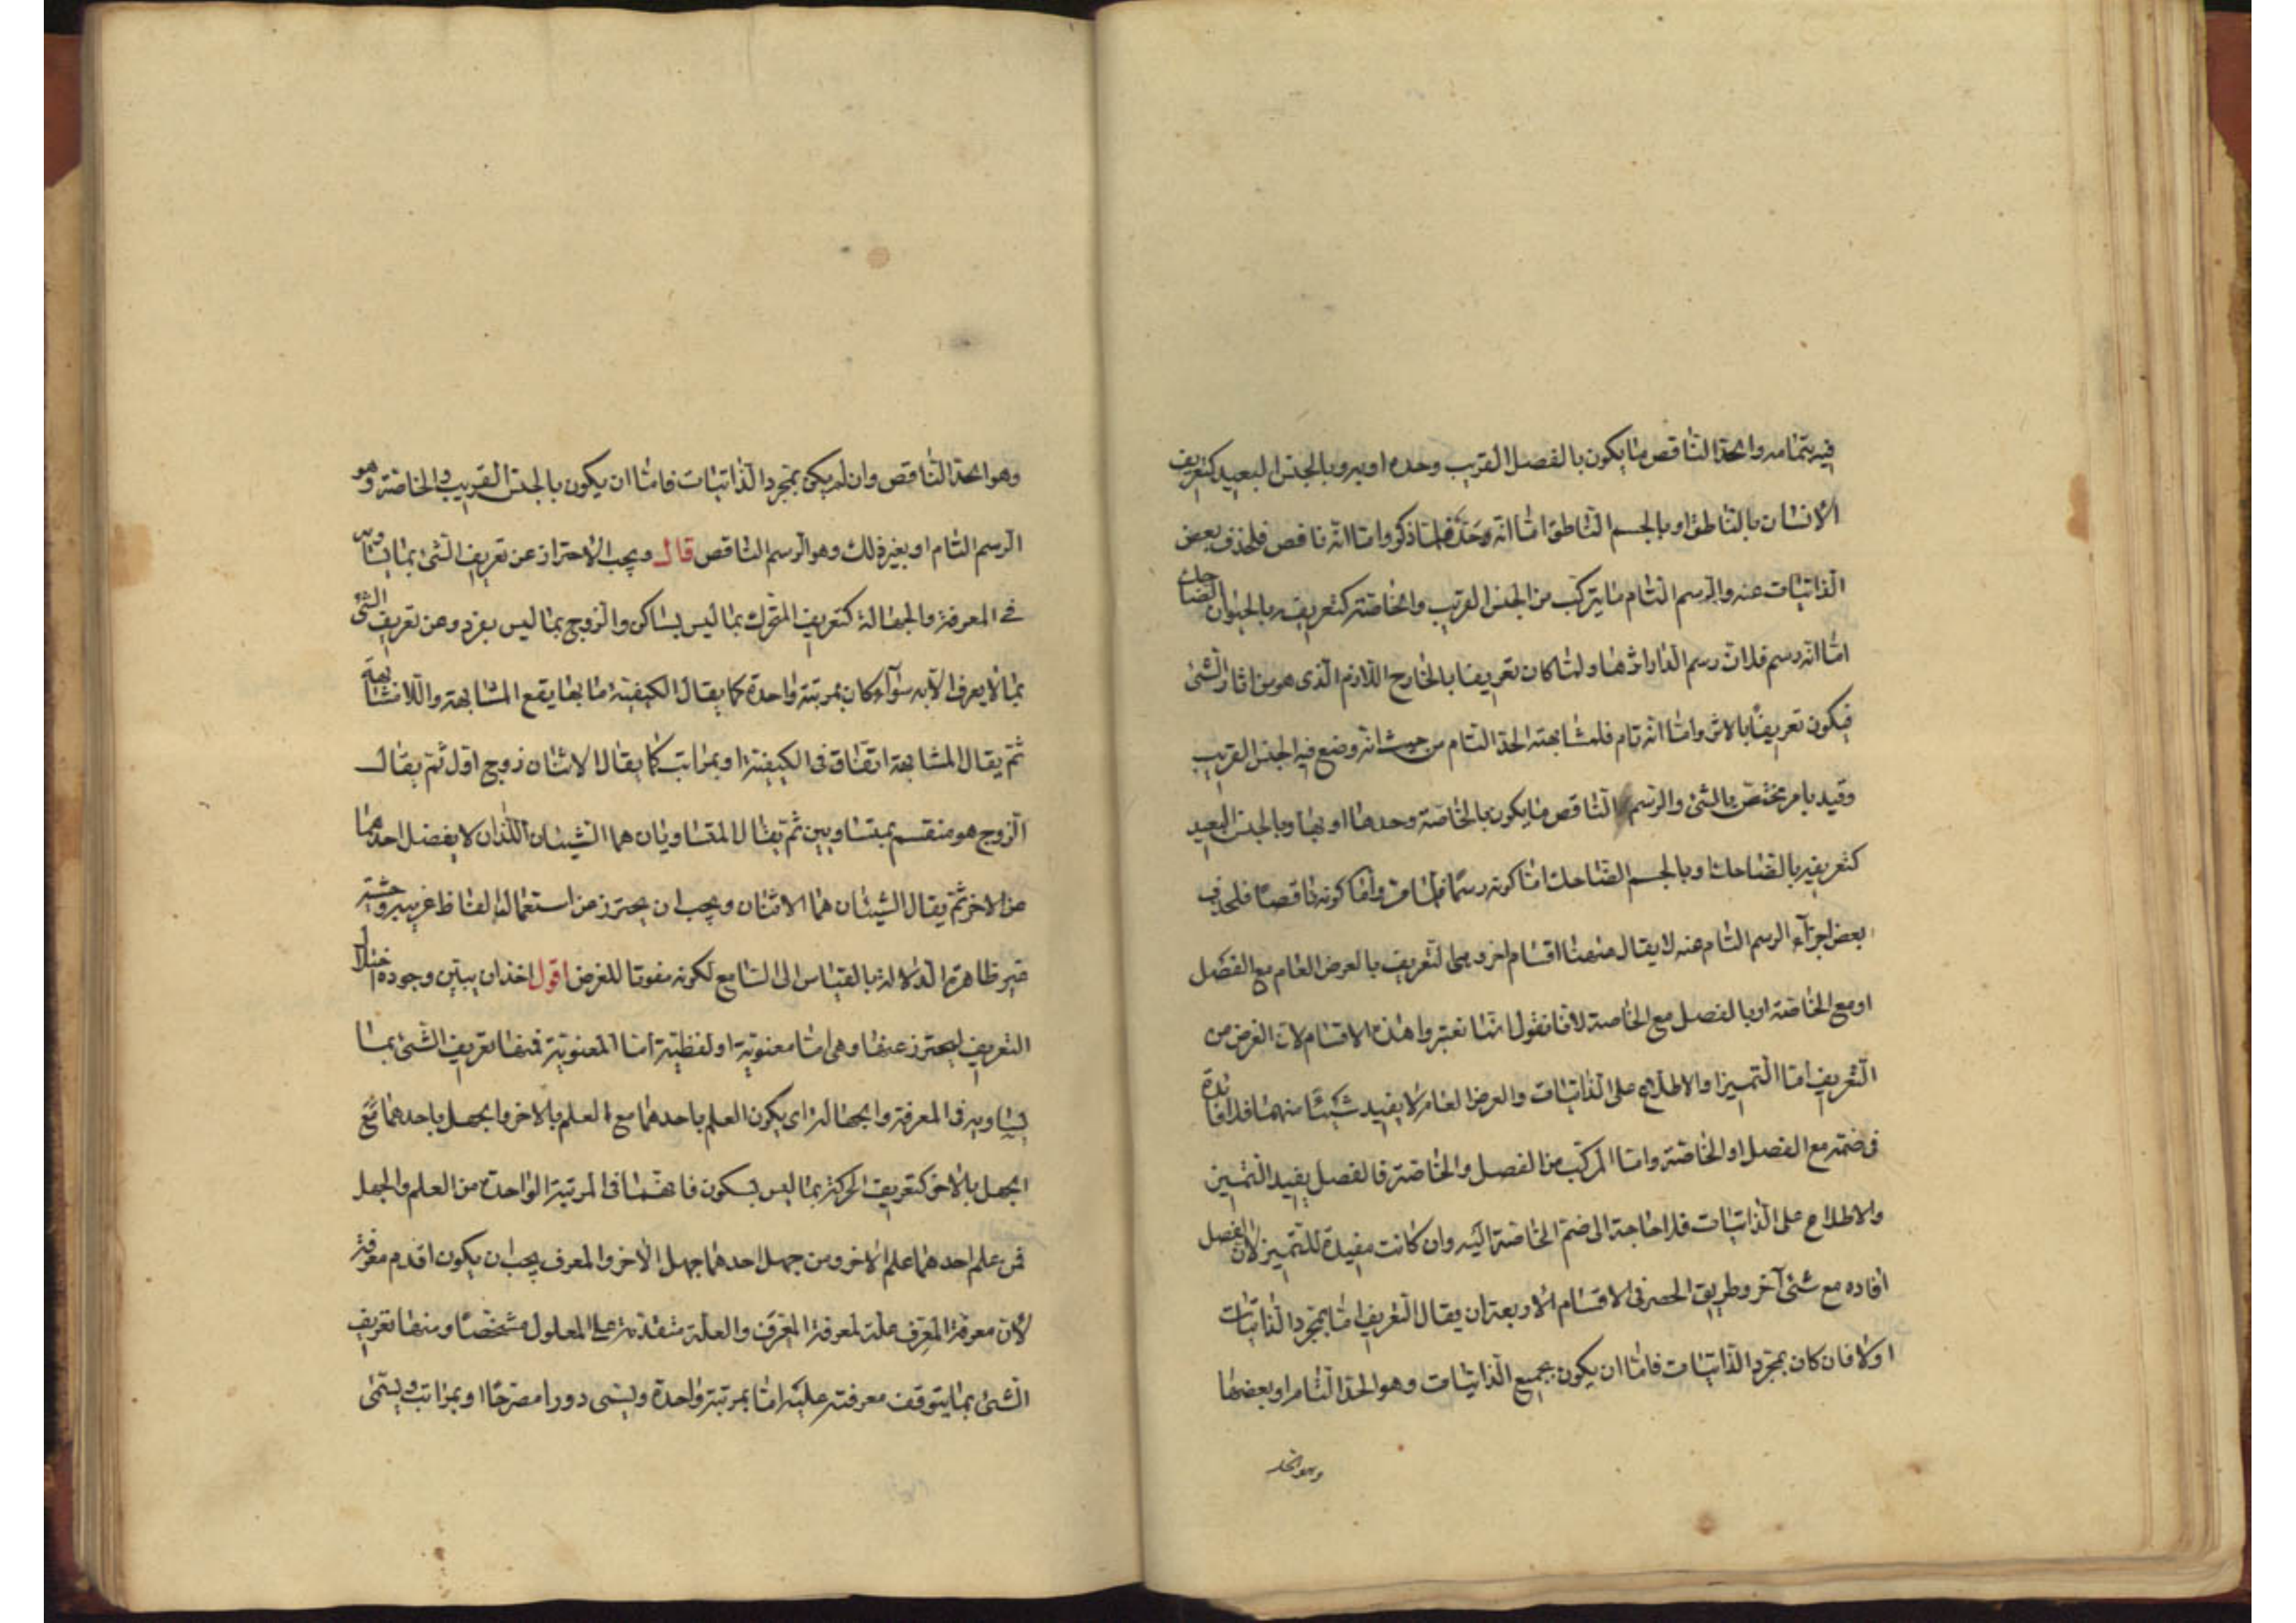 فيه بتمامه والحد الناقص ما يكون بالفصل القريب وحده او به وبالجنس البعيد كتعريف
الانسان بالناطق او بالجسم الناطق اما انه وحد فلما ذكر واما انه ناقص فلحذف بعض
الذاتيات عنه والرسم التام ما يتركب من الجنس القريب والخاصة كتعريفه بالحيوان الضاحك
اما انه رسم فلان رسم الدار اثرها ولما كان تعريفا بالخارج اللازم الذى هو من اثار الشئ
فيكون تعريفا بالاثر واما انه تام فلمشابهته الحد التام من حيث انه وضع فيه الجنس القريب
وقيد بامر مختص بالشئ والرسم الناقص ما يكون بالخاصة وحدها او بها وبالجنس البعيد
كتعريفه بالضاحك او بالجسم الضاحك اما كونه رسما فلما مر واما كونه ناقصا فلحذف
بعض اجزآء الرسم التام عنه لا يقال ههنا اقسام اخر وهى التعريف بالعرض العام مع الفصل
او مع الخاصة او بالفصل مع الخاصة لانا نقول انما لم تعتبروا هذه الاقسام لان الغرض من
التعريف اما التميز او الاطلاع على الذاتيات والعرض العام لا يفيد شيئا منهما فلا فائدة
فى ضمه مع الفصل او الخاصة واما المركب من الفصل والخاصة فالفصل يفيد التميز
والاطلاع على الذاتيات فلا حاجة الى ضم الخاصة اليه وان كانت مفيدة للتميز لان الفصل
افاده مع شئ آخر وطريق الحصر فى الاقسام الاربعة ان يقال التعريف اما بمجرد الذاتيات
او لا فان كان بمجرد الذاتيات فاما ان يكون بجميع الذاتيات وهو الحد التام او ببعضها
وهو الحد
وهو الحد الناقص وان لم يكن بمجرد الذاتيات فاما ان يكون بالجنس القريب والخاصة وهو
الرسم التام او بغير ذلك وهو الرسم الناقص قال ويجب الاحتراز عن تعريف الشئ بما يساويه
فى المعرفة والجهالة كتعريف المتحرك بما ليس بساكن والزوج بما ليس بفرد وعن تعريف الشئ
بما لا يعرف الا به سوآء كان بمرتبة واحدة كما يقال الكيفية ما بها يقع المشابهة واللامشابهة
ثم يقال المشابهة اتفاق فى الكيفية او بمراتب كما يقال الاثنان زوج اول ثم يقال
الزوج هو منقسم بمتساويين ثم يقال المتساويان هما الشيئان اللذان لا يفضل احدهما
عن الاخر ثم يقال الشيئان هما الاثنان ويجب ان يحترز عن استعمال الفاظ غريبة وحشية
غير ظاهرة الدلالة بالقياس الى السامع لكونه مفوتا للغرض اقول اخذ ان يبين وجوه اختلال
التعريف ليحترز عنها وهى اما معنوية او لفظية اما المعنوية فمنها تعريف الشئ بما
يساويه فى المعرفة والجهالة اى يكون العلم باحدهما مع العلم بالاخر والجهل باحدهما مع
الجهل بالاخر كتعريف الحركة بما ليس بسكون فانهما فى المرتبة الواحدة من العلم والجهل
فمن علم احدهما علم الاخر ومن جهل احدهما جهل الاخر والمعرف يجب ان يكون اقدم معرفة
لان معرفة المعرِف علة لمعرفة المعرَف والعلة متقدمة على المعلول ومنها تعريف
الشئ بما يتوقف معرفته عليه اما بمرتبة واحدة ويسمى دورا مصرحا او بمراتب ويسمى